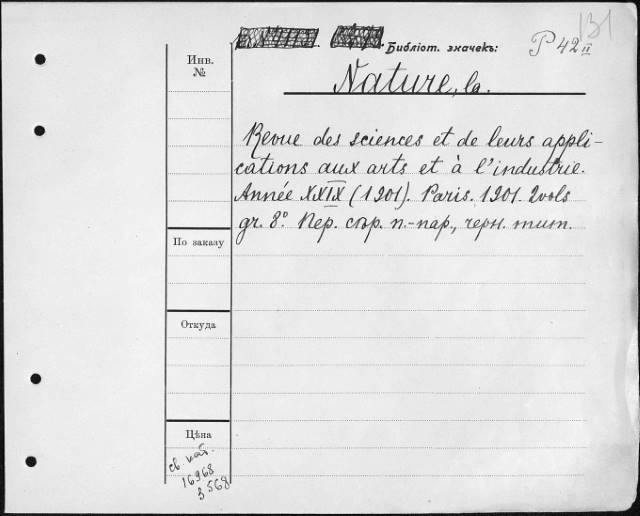 131
Библіот. значекъ:
P 42 II
Инв.
№
Nature, la.
Revue des sciences et de leurs appli-
cations aux arts et à l'industrie.
Année XXIX (1901). Paris. 1901. 2 vols
gr. 8°. Пер. сѣр. п.-пар., черн. тит.
По заказу
Откуда
Цѣна
св. кат.
16968
3568